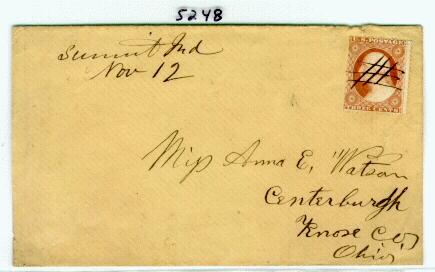 5248
Summit Ind
Nov 12
U.S. POSTAGE
THREE CENTS
Miss Anna E. Watson
Centerburgh
Knox Co,
Ohio